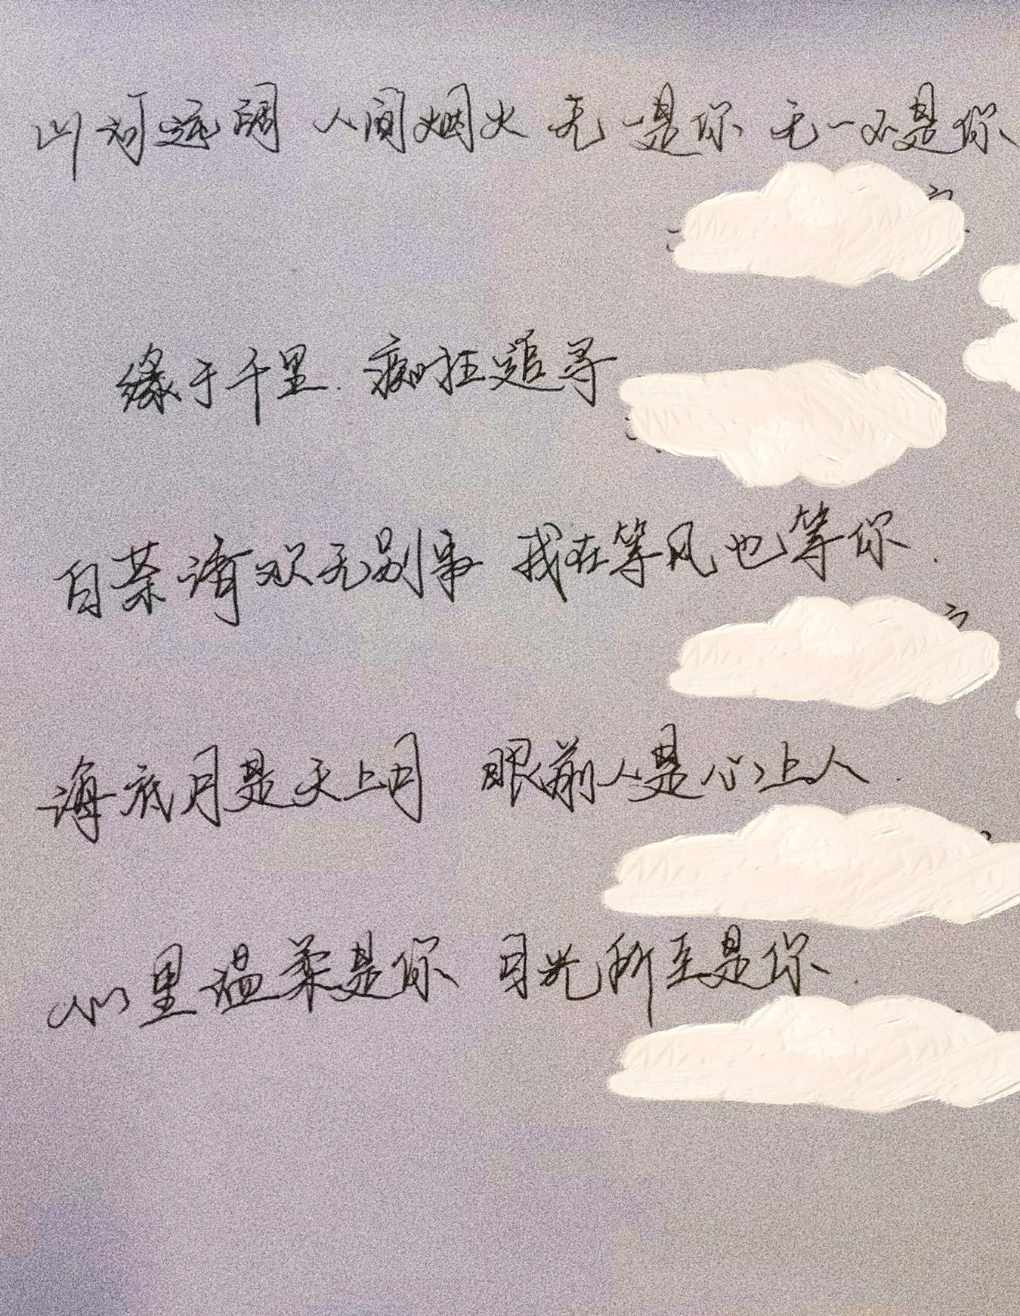 山河远阔 人间烟火 无一是你 无一不是你
缘于千里. 痴狂追寻
白茶清欢无别事 我在等风也等你.
海底月是天上月 眼前人是心上人.
心里温柔是你 目光所至是你.